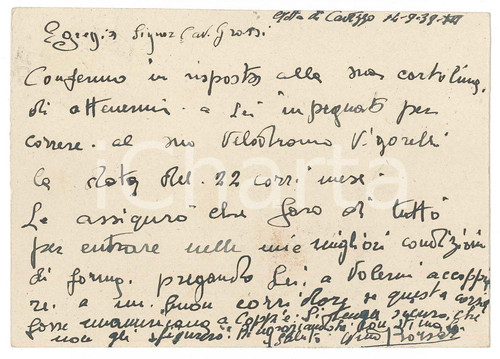 14-9-39-XVII
Egregio Signor Cav. Grossi
Confermo in risposta alla sua cartolina,
di attenermi a Lei impegnato per
correre al suo Velodromo Vigorelli
la data del 22 corr. mese.
Le assicuro che farò di tutto
per entrare nelle mie migliori condizioni
di forma, pregando Lei a volermi accoppia
re a un buon corridore se questa corsa
fosse un'americana a coppie. Si tenga sicuro, che
non gli
saluto
iCharta